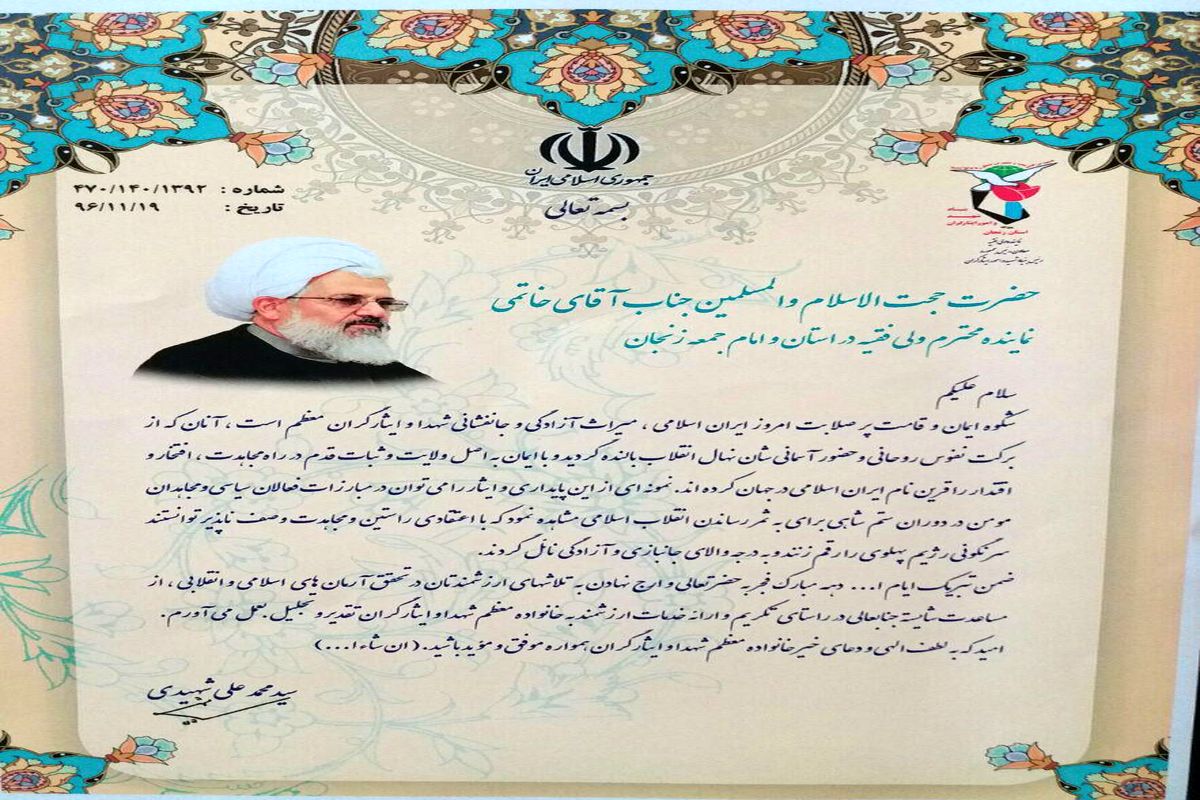 جمهوری اسلامی ایران
بسمه تعالی
شماره : ۴۷۰/۱۴۰/۱۳۹۲
تاریخ : ۹۶/۱۱/۱۹
استان زنجان
حضرت حجت الاسلام والمسلمین جناب آقای خاتمی
نماینده محترم ولی فقیه در استان و امام جمعه زنجان
سلام علیکم
شکوه ایمان و قامت پر صلابت امروز ایران اسلامی ، میراث آزادگی و جانفشانی شهدا و ایثارگران معظم است ، آنان که از
برکت نفوس روحانی و حضور آسمانی شان نهال انقلاب بالنده گردید و با ایمان به اصل ولایت و ثبات قدم در راه مجاهدت ، افتخار و
اقتدار را قرین نام ایران اسلامی در جهان کرده اند. نمونه ای از این پایداری و ایثار را می توان در مبارزات فعالان سیاسی و مجاهدان
مومن در دوران ستم شاهی برای به ثمر رساندن انقلاب اسلامی مشاهده نمود که با اعتقادی راستین و مجاهدت وصف ناپذیر توانستند
سرنگونی رژیم پهلوی را رقم زنند و به درجه والای جانبازی و آزادگی نائل گردند.
ضمن تبریک ایام ا... دهه مبارک فجر به حضرتعالی و ارج نهادن به تلاشهای ارزشمندتان در تحقق آرمان های اسلامی و انقلابی ، از
مساعدت شایسته جنابعالی در راستای تکریم و ارائه خدمات ارزشمند به خانواده معظم شهدا و ایثارگران تقدیر و تجلیل بعمل می آورم.
امید که به لطف الهی و دعای خیر خانواده معظم شهدا و ایثارگران همواره موفق و مؤید باشید. (ان شاء ا...)
سید محمد علی شهیدی